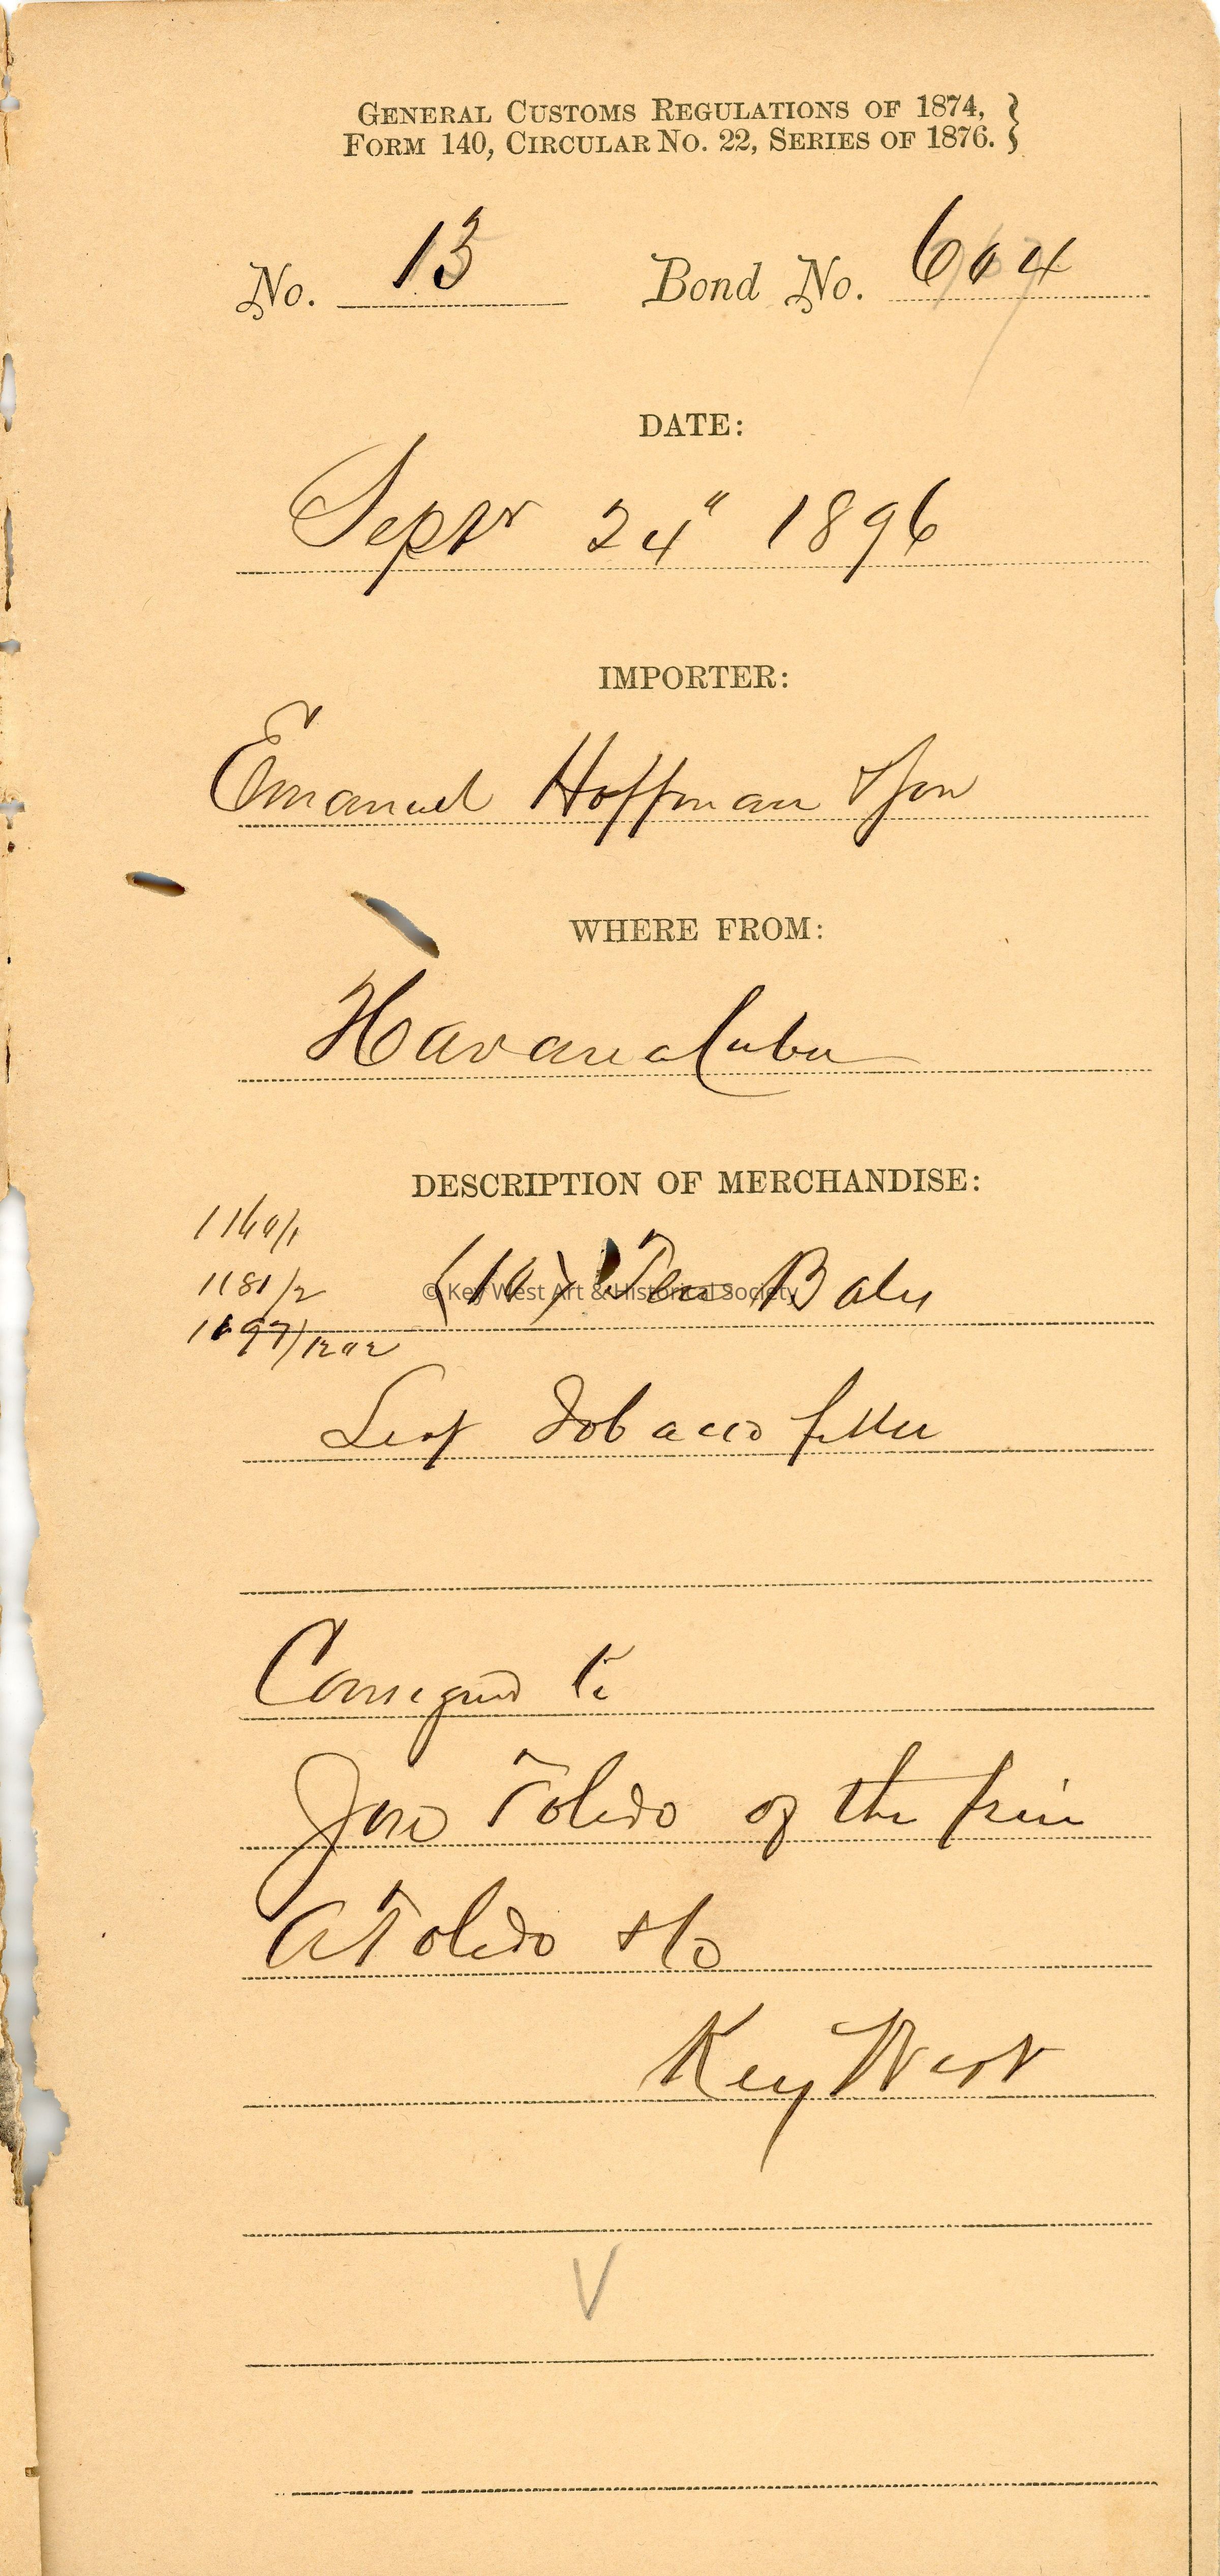 GENERAL CUSTOMS REGULATIONS OF 1874, }
FORM 140, CIRCULAR NO. 22, SERIES OF 1876. }
No. 13 Bond No. 604
DATE:
Septr 24" 1896
IMPORTER:
Emanuel Hoffman & Son
WHERE FROM:
Havana Cuba
DESCRIPTION OF MERCHANDISE:
1181/2 (10) Ten Bales
© Key West Art & Historical Society
Leaf Tobacco filler
Consigned to
Jose Toledo of the firm
A Toledo & Co
Key West
V